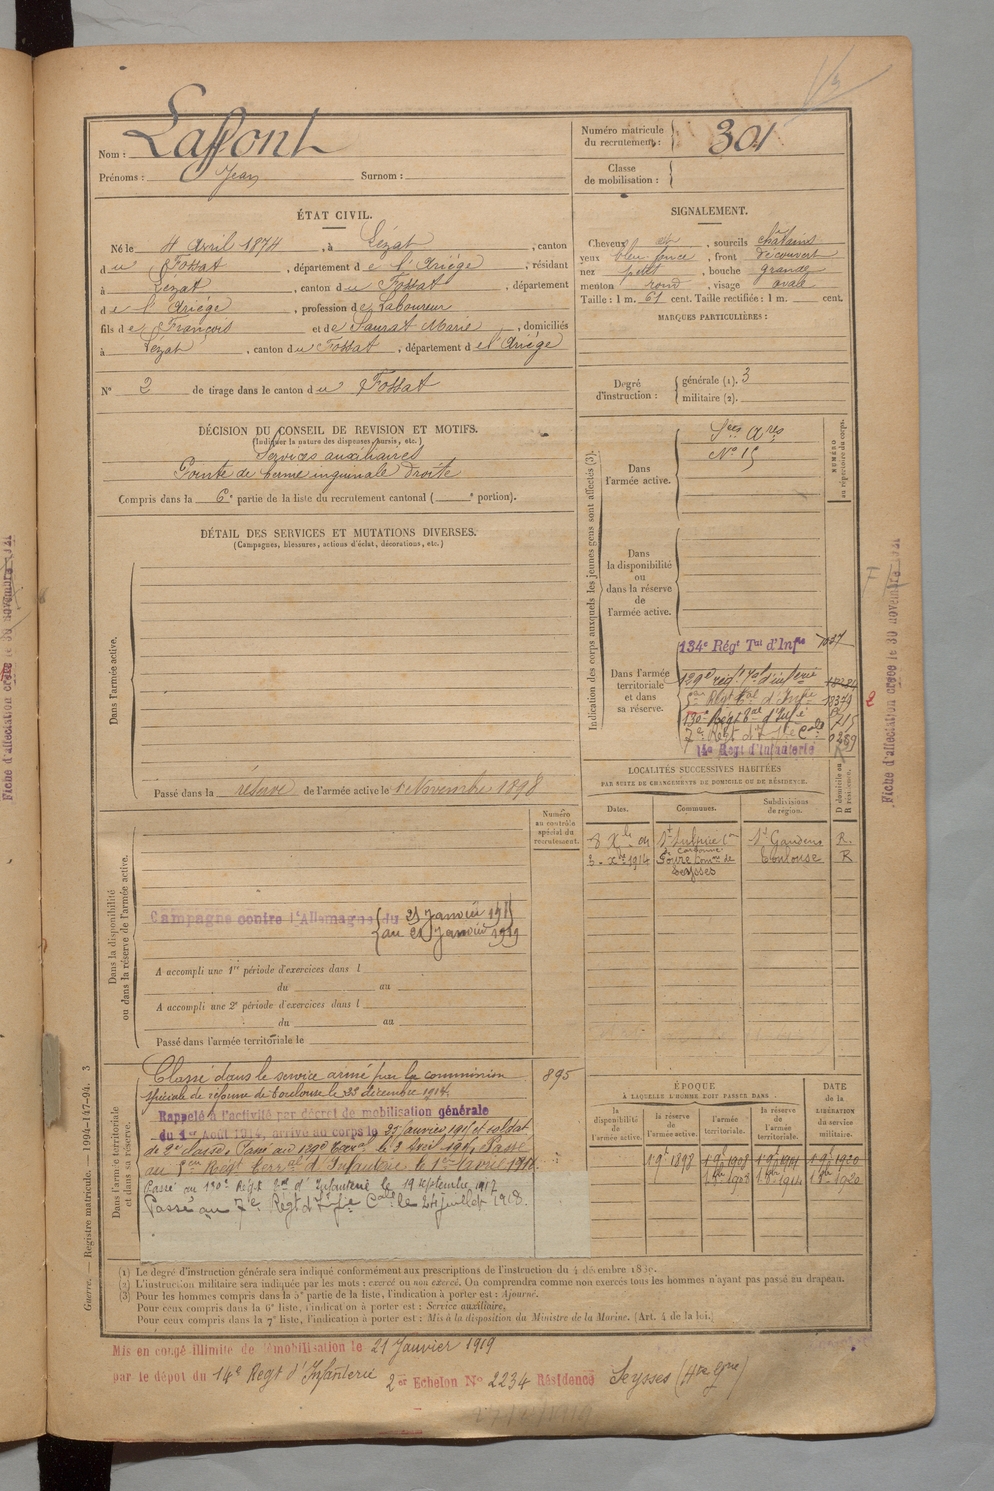 Nom : Laffont
Prénoms : Jean Surnom :
Numéro matricule du recrutement : 301
Classe de mobilisation :
ÉTAT CIVIL.
Né le 4 Avril 1874, à Lézat, canton
du Fossat, département de l'Ariège, résidant
à Lézat, canton du Fossat, département
de l'Ariège, profession de Laboureur
fils de François et de Saurat Marie, domiciliés
à Lézat, canton du Fossat, département de l'Ariège
N° 2 de tirage dans le canton du Fossat
SIGNALEMENT.
Cheveux et, sourcils châtains
yeux bleu foncé, front découvert
nez petit, bouche grande
menton rond, visage ovale
Taille : 1 m. 61 cent. Taille rectifiée : 1 m. cent.
MARQUES PARTICULIÈRES :
Degré d'instruction : générale (1). 3
militaire (2).
DÉCISION DU CONSEIL DE REVISION ET MOTIFS.
(Indiquer la nature des dispenses, sursis, etc.)
Services auxiliaires
Pointe de hernie inguinale droite
Compris dans la 6e partie de la liste du recrutement cantonal ( e portion).
DÉTAIL DES SERVICES ET MUTATIONS DIVERSES.
(Campagnes, blessures, actions d'éclat, décorations, etc.)
Dans l'armée active.
Passé dans la réserve de l'armée active le 1 Novembre 1898
Indication des corps auxquels les jeunes gens sont affectés (3).
NUMÉRO au répertoire du corps.
Dans l'armée active.
Sces Ares
N° 15
Dans la disponibilité ou dans la réserve de l'armée active.
Dans l'armée territoriale et dans sa réserve.
134e Régt Tal d'Infie 7037
129e régt Tal d'infterie
Régt Tal d'Infie
130e Régt Tal d'Infie 715
7e Régt d'Infie Cale 0289
14e Regt d'Infanterie
LOCALITÉS SUCCESSIVES HABITÉES
PAR SUITE DE CHANGEMENTS DE DOMICILE OU DE RÉSIDENCE.
Dates. Communes. Subdivisions de région. D domicile ou R résidence.
St Gaudens R.
1914 Seysses Toulouse R
Numéro au contrôle spécial du recrutement.
Dans la disponibilité ou dans la réserve de l'armée active.
Campagne contre l'Allemagne du 21 Janvier 191
au 21 Janvier 1919
A accompli une 1re période d'exercices dans l
du au
A accompli une 2e période d'exercices dans l
du au
Passé dans l'armée territoriale le
Dans l'armée territoriale et dans sa réserve.
Classé dans le service armé par la commission 895
spéciale de réforme de Toulouse le 23 décembre 1914.
Rappelé à l'activité par décret de mobilisation générale
du 1er Août 1914, arrivé au corps le Janvier 1915 et soldat
de 2e classe. Passé au 129e Terral le 3 Avril 1915. Passé
au Régt Terral d'Infanterie le 1er avril
Passé au 130e Régt Tal d'Infanterie le 19 septembre 1917
Passé au 7e Régt d'Infie Cale le 24 juillet 1918.
ÉPOQUE
À LAQUELLE L'HOMME DOIT PASSER DANS
la disponibilité de l'armée active. la réserve de l'armée active. l'armée territoriale. la réserve de l'armée territoriale. DATE de la LIBÉRATION du service militaire.
1898 1908 1914 1920
1908 1914 1920
(1) Le degré d'instruction générale sera indiqué conformément aux prescriptions de l'instruction du 4 décembre 1889.
(2) L'instruction militaire sera indiquée par les mots : exercé ou non exercé. On comprendra comme non exercés tous les hommes n'ayant pas passé au drapeau.
(3) Pour les hommes compris dans la 5e partie de la liste, l'indication à porter est : Ajourné.
Pour ceux compris dans la 6e liste, l'indication à porter est : Service auxiliaire.
Pour ceux compris dans la 7e liste, l'indication à porter est : Mis à la disposition du Ministre de la Marine. (Art. 4 de la loi.)
Mis en congé illimité de démobilisation le 21 Janvier 1919
par le dépôt du 14e Regt d'Infanterie 2er Echelon N° 2234 Résidence Seysses (Hte Gne)
Guerre. — Registre matricule. — 1994-147-94. 3
Fiche d'affectation créée le 30 novembre 1931